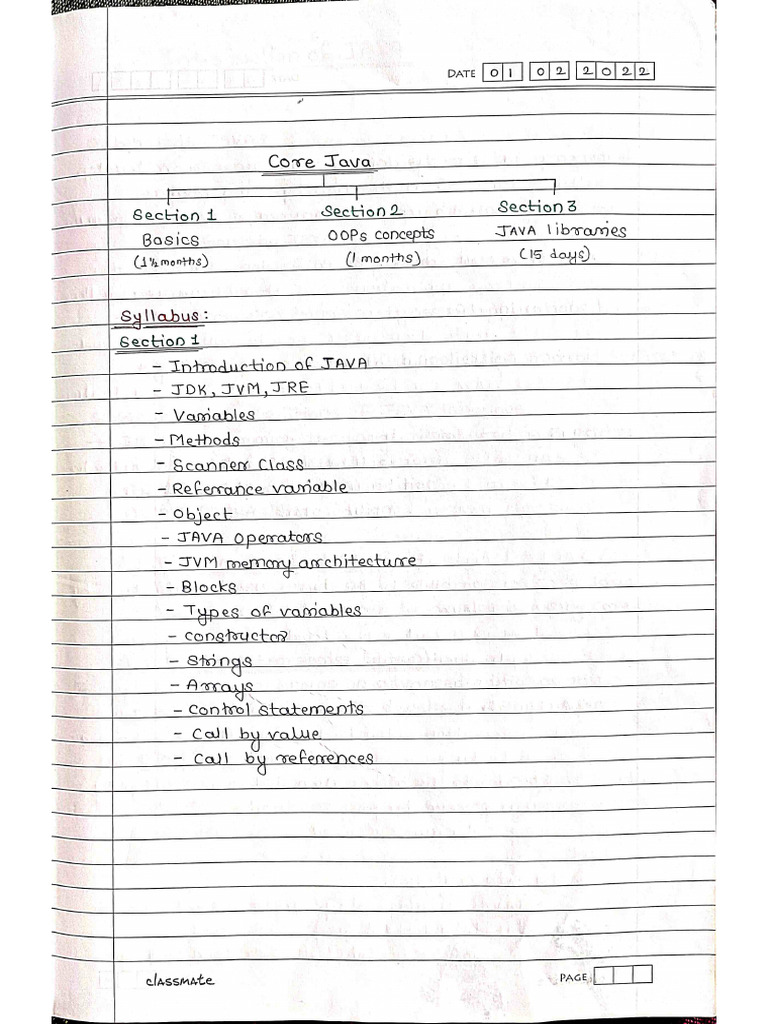 DATE 01 02 2022
Core Java
Section 1 Section 2 Section 3
Basics OOPs concepts JAVA libraries
(1½ months) (1 months) (15 days)
Syllabus:
Section 1
- Introduction of JAVA
- JDK, JVM, JRE
- Variables
- Methods
- Scanner Class
- Referrance variable
- Object
- JAVA Operators
- JVM memory architecture
- Blocks
- Types of variables
- constructor
- Strings
- Arrays
- Control statements
- Call by value
- Call by references
classmate PAGE